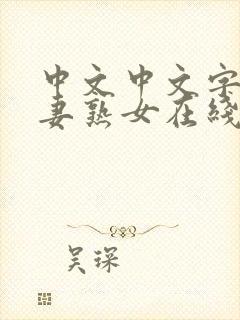 中文中文字
妻熟女在綫
吴琛